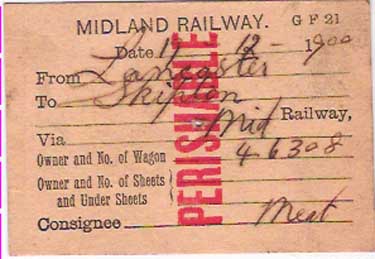 MIDLAND RAILWAY. G F 21
Date 19 - 12 - 1900
From Lancaster
To Skipton
Mid Railway,
Via
Owner and No. of Wagon 46308
Owner and No. of Sheets
and Under Sheets
Consignee Meat
PERISHABLE